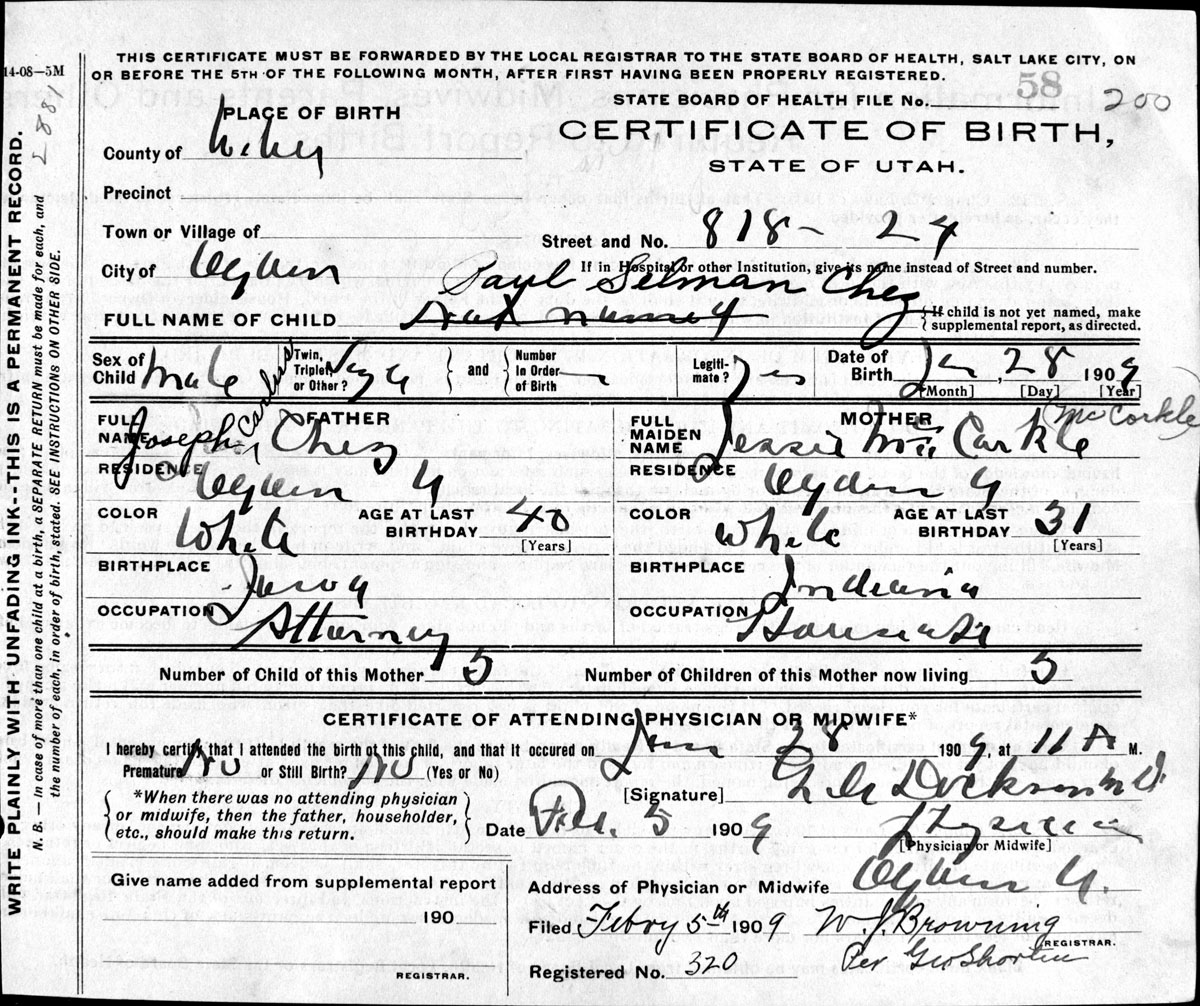 THIS CERTIFICATE MUST BE FORWARDED BY THE LOCAL REGISTRAR TO THE STATE BOARD OF HEALTH, SALT LAKE CITY, ON
OR BEFORE THE 5TH OF THE FOLLOWING MONTH, AFTER FIRST HAVING BEEN PROPERLY REGISTERED.
14-08—5M
288
WRITE PLAINLY WITH UNFADING INK--THIS IS A PERMANENT RECORD.
N. B. — In case of more than one child at a birth, a SEPARATE RETURN must be made for each, and
the number of each, in order of birth, stated. SEE INSTRUCTIONS ON OTHER SIDE.
STATE BOARD OF HEALTH FILE No. 58 200
PLACE OF BIRTH
CERTIFICATE OF BIRTH,
STATE OF UTAH.
County of Weber
Precinct
Town or Village of
Street and No. 818 - 24
City of Ogden
If in Hospital or other Institution, give its name instead of Street and number.
Paul Selman Chez
FULL NAME OF CHILD Not named
If child is not yet named, make
supplemental report, as directed.
Sex of Child Male
Twin, Triplet or Other?
and
Number In Order of Birth —
Legitimate? Yes
Date of Birth Jan, 28 1909
[Month] [Day] [Year]
FATHER
FULL NAME Joseph Chez
MOTHER
FULL MAIDEN NAME Jessie Mc Carkle
McCorkle
RESIDENCE Ogden U
RESIDENCE Ogden U
COLOR White AGE AT LAST BIRTHDAY 40 [Years]
COLOR White AGE AT LAST BIRTHDAY 31 [Years]
BIRTHPLACE Iowa
BIRTHPLACE Indiana
OCCUPATION Attorney
OCCUPATION Housewife
Number of Child of this Mother 5
Number of Children of this Mother now living 5
CERTIFICATE OF ATTENDING PHYSICIAN OR MIDWIFE*
I hereby certify that I attended the birth of this child, and that it occured on Jan 28 1909, at 11 A M.
Premature No or Still Birth? No (Yes or No)
*When there was no attending physician
or midwife, then the father, householder,
etc., should make this return.
[Signature] Dickson M.D.
Date Feb. 5 1909
Physician
[Physician or Midwife]
Give name added from supplemental report
190
REGISTRAR.
Address of Physician or Midwife Ogden U.
Filed Febry 5th 1909 W. J. Browning
REGISTRAR.
Registered No. 320 Per Geo Shorten